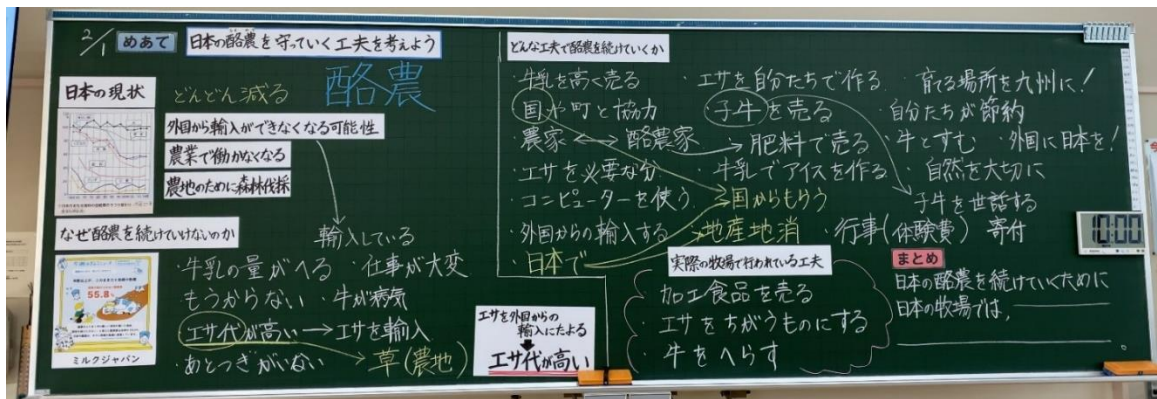 2/1 めあて 日本の酪農を守っていく工夫を考えよう
酪農
日本の現状
どんどん減る
外国から輸入ができなくなる可能性
農業で働かなくなる
農地のために森林伐採
なぜ酪農を続けていけないのか
輸入している
・牛乳の量がへる ・仕事が大変
・もうからない ・牛が病気
・エサ代が高い→エサを輸入
・あとつぎがいない 草(農地)
55.8%
ミルクジャパン
エサを外国からの
輸入にたよる
エサ代が高い
どんな工夫で酪農を続けていくか
・牛乳を高く売る ・エサを自分たちで作る ・育てる場所を九州に!
・国や町と協力 ・子牛を売る ・自分たちが節約
・農家↔酪農家→肥料で売る ・牛とすむ ・外国に日本を!
・エサを必要な分 ・牛乳でアイスを作る ・自然を大切に
・コンピューターを使う ・国からもらう ・子牛を世話する
・外国からの輸入する ・地産地消 ・行事(体験費) 寄付
・日本で
実際の牧場で行われている工夫
・加工食品を売る
・エサをちがうものにする
・牛をへらす
まとめ
日本の酪農を続けていくために
日本の牧場では,
。